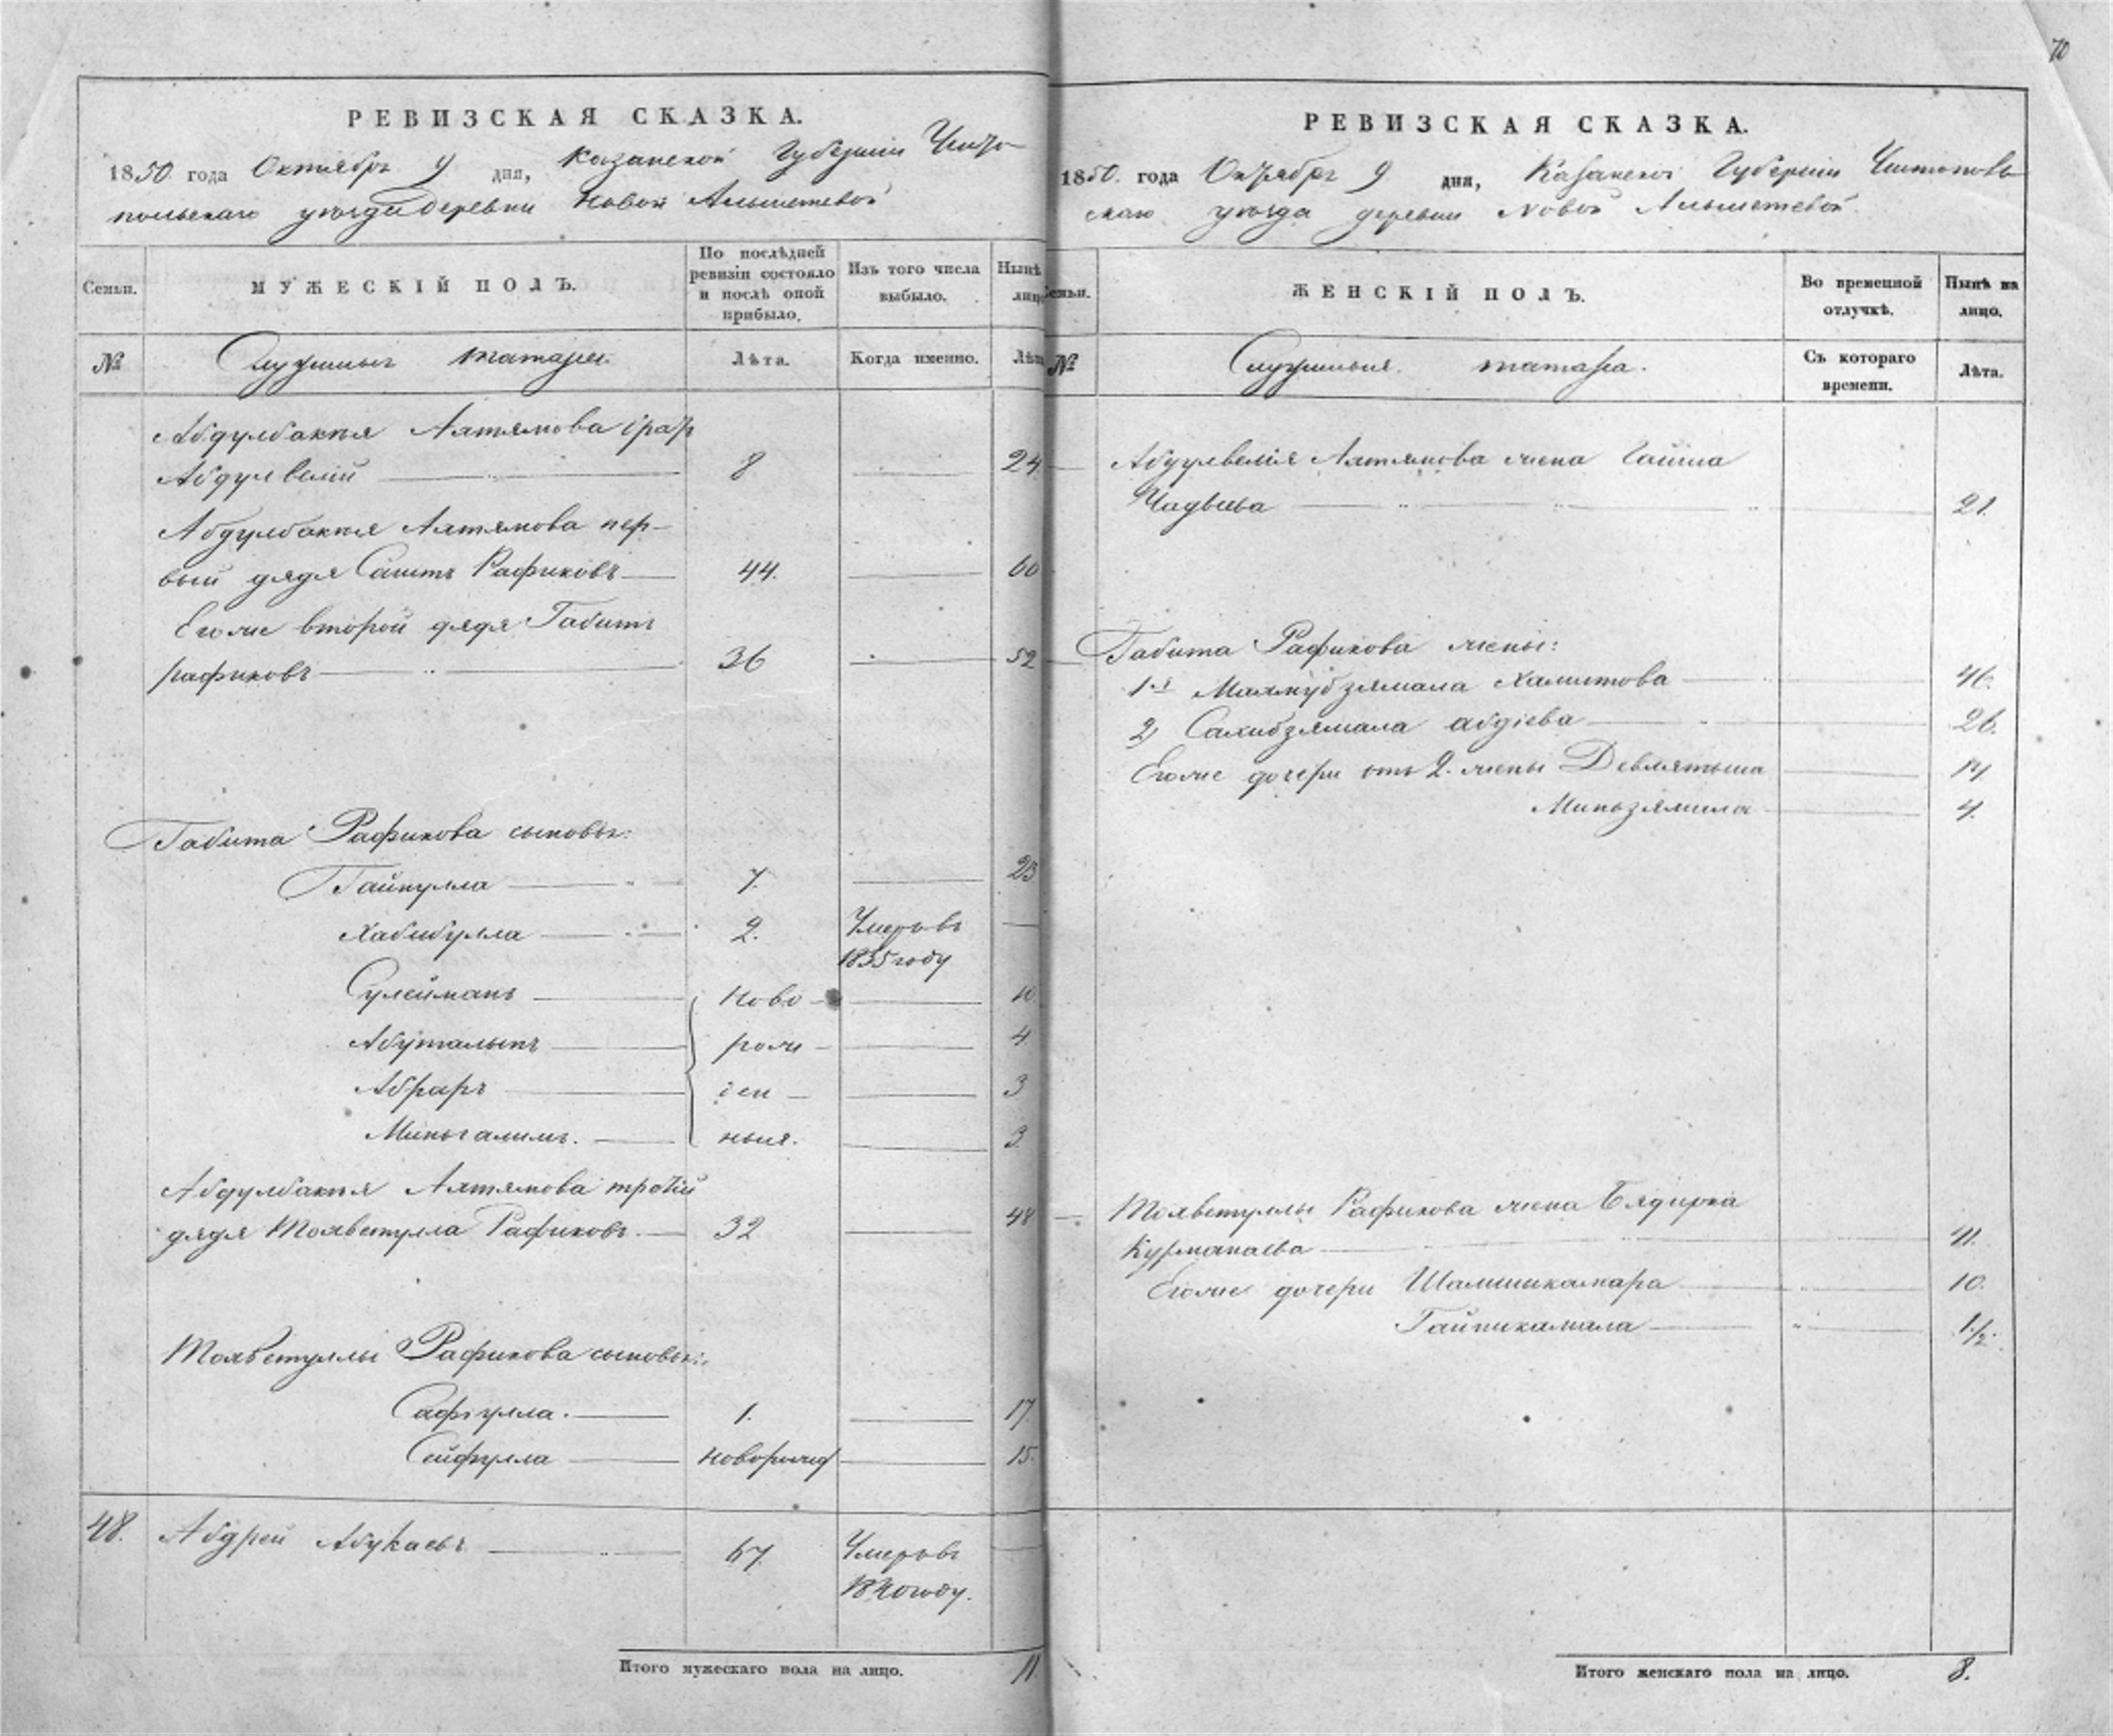 70
РЕВИЗСКАЯ СКАЗКА.
1850 года Октября 9 дня, Казанской Губернии Чисто-
польскаго уезда деревни Новой Альметевой
Семьи.
МУЖЕСКІЙ ПОЛЪ.
По послѣдней ревизіи состояло и послѣ оной прибыло.
Изъ того числа выбыло.
Нынѣ
№
Служилыя татары.
Лѣта.
Когда именно.
Абдулбакыя Ахтямова братъ
Абдулвелій 8 24
Абдулбакыя Ахтямова пер-
вый дядя Саитъ Рафиковъ 44. 60
Егоже второй дядя Габитъ
рафиковъ 36 52
Габита Рафикова сыновья:
Гайнулла 7. 23
Хабибулла 2. Умеръ въ
1835 году
Сулейманъ Ново- 10
Абуталыпъ рож- 4
Абраръ ден- 3
Миньгалимъ. ныя. 3.
Абдулбакыя Ахтямова третій
дядя Тохветулла Рафиковъ. 32 48
Тохветуллы Рафикова сыновья:
Сафіулла. 1. 17
Сейфулла новорожд 15.
48. Абдрей Абукаевъ 67. Умеръ въ
1840 году.
Итого мужескаго пола на лицо. 11
РЕВИЗСКАЯ СКАЗКА.
1850. года Октября 9 дня, Казанской Губерніи Чистополь
скаго уѣзда деревни Новой Альметевой.
Семьи.
ЖЕНСКІЙ ПОЛЪ.
Во временной отлучкѣ.
Нынѣ на лицо.
№
Служилыя татара.
Съ котораго времени.
Лѣта.
Абдулвелія Ахтямова жена Гайша
21.
Габита Рафикова жены:
1я Махмубзямала Хамитова 46.
2) Сахибзямала абдіева 26.
Егоже дочери отъ 2. жены Девлятьша 14
Миньзямила 4.
Тохветуллы Рафикова жена Бядирка
Курмакаева 41.
Егоже дочери Шамшикамара 10.
Гайникамала 1/2.
Итого женскаго пола на лицо. 8.